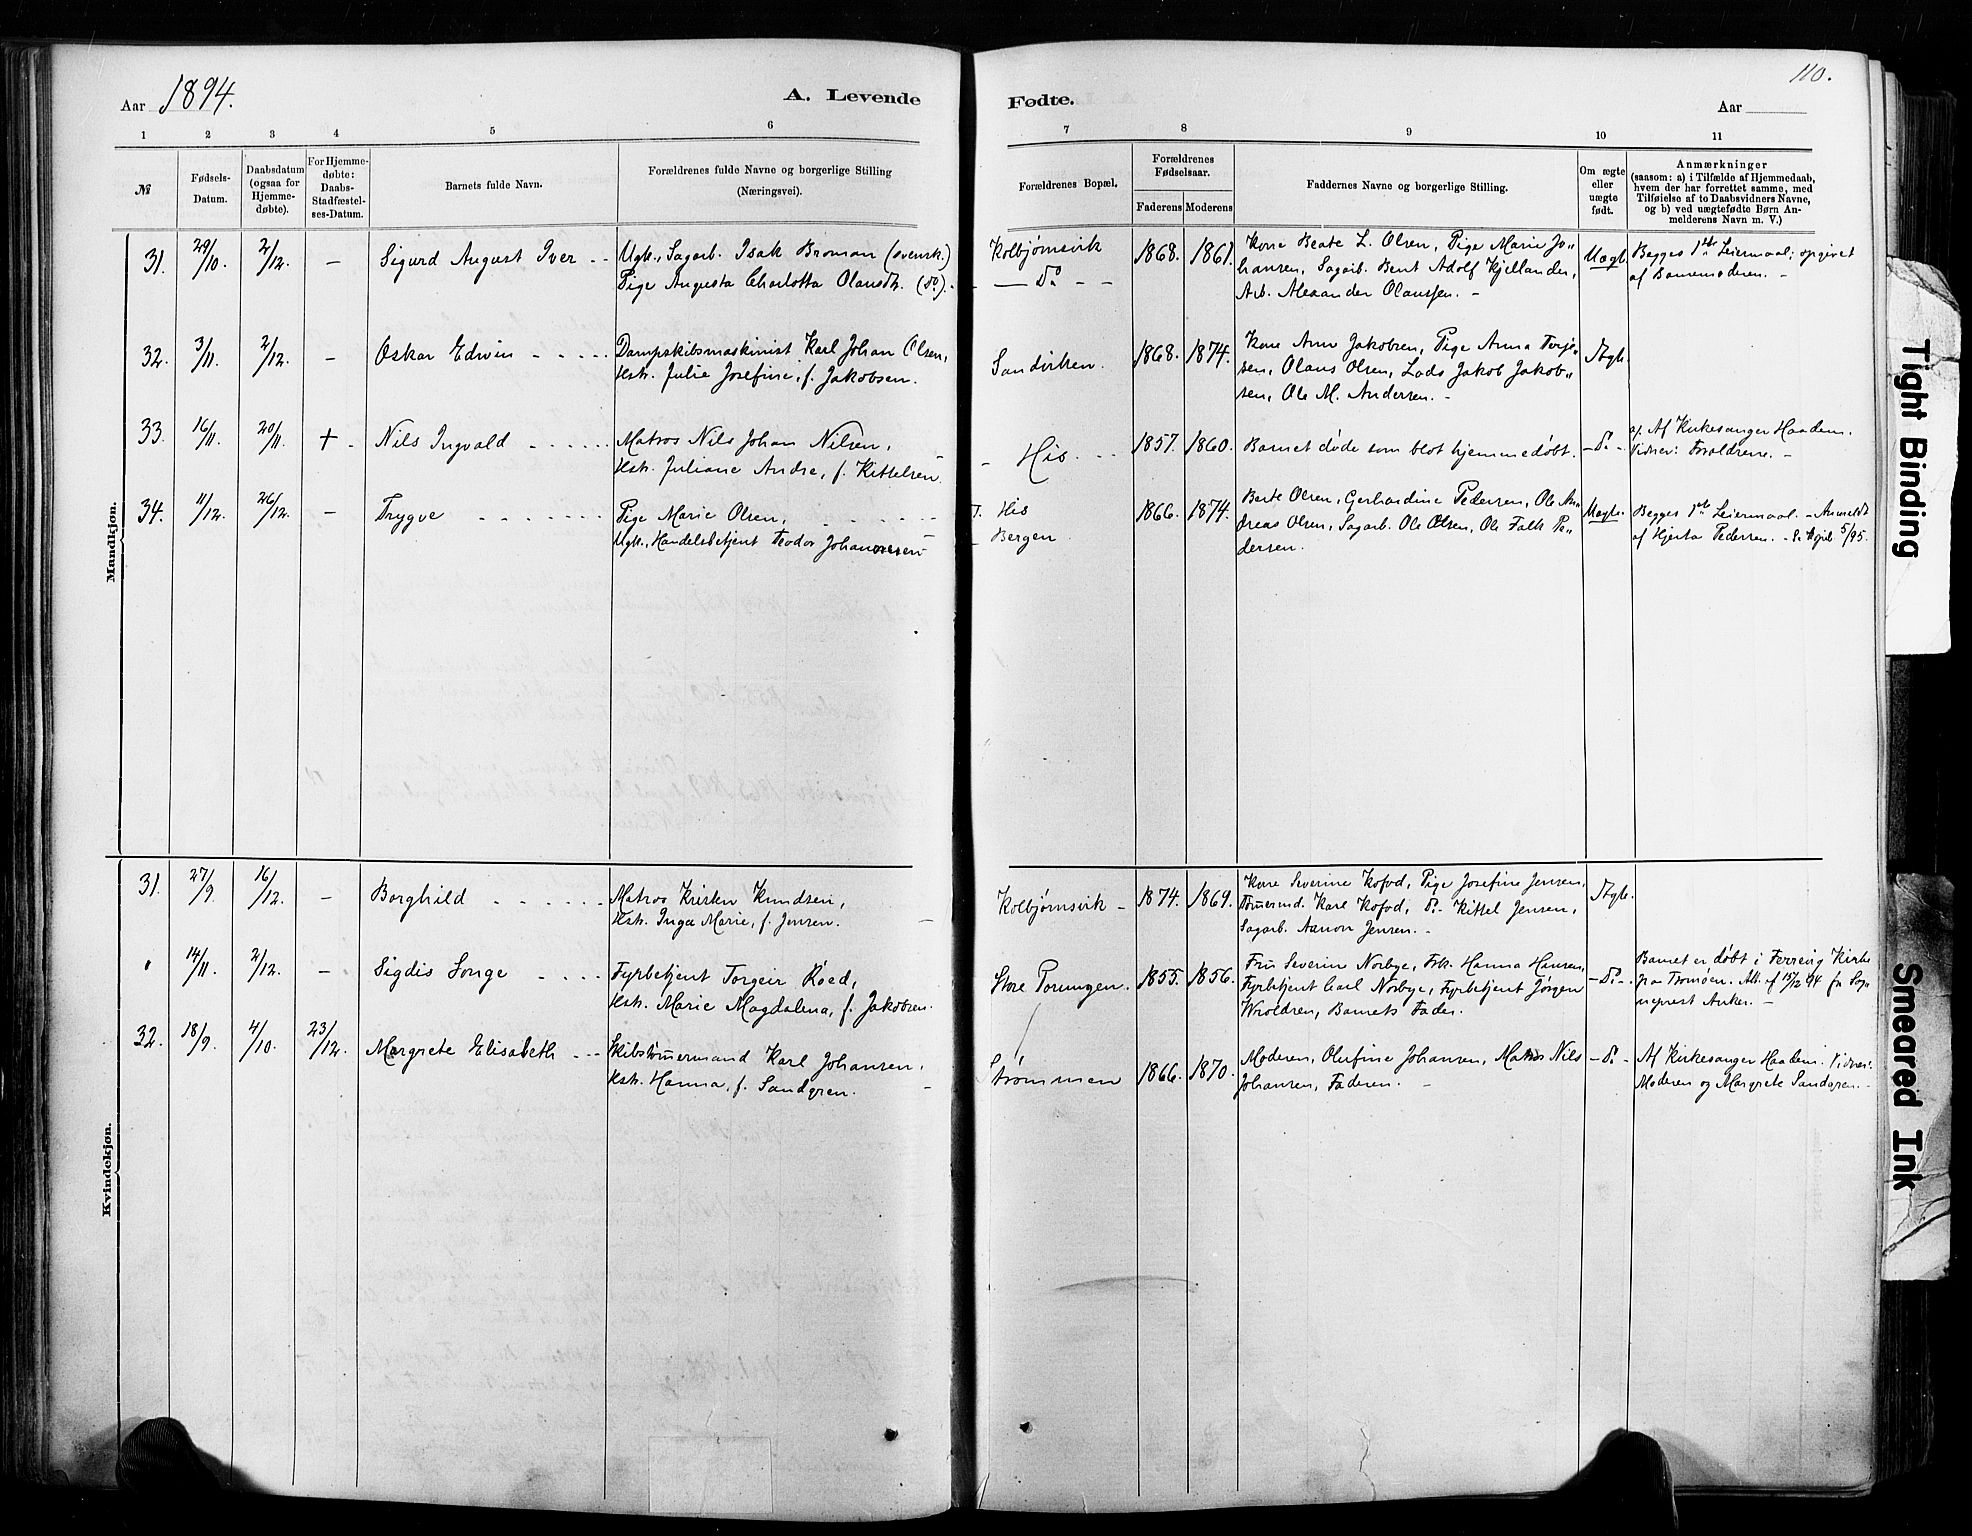 Aar 1894.
A. Levende
Fødte.
110.
Aar
1 2 3 4 5 6 7 8 9 10 11
№
Fødsels-Datum.
Daabsdatum (ogsaa for Hjemme-døbte).
For Hjemme-døbte: Daabs-Stadfæstel-ses-Datum.
Barnets fulde Navn.
Forældrenes fulde Navne og borgerlige Stilling
(Næringsvei).
Forældrenes Bopæl.
Forældrenes Fødselsaar.
Faderens Moderens
Faddernes Navne og borgerlige Stilling.
Om ægte eller uægte født.
Anmærkninger
(saasom: a) i Tilfælde af Hjemmedaab,
hvem der har forrettet samme, med
Tilføielse af to Daabsvidners Navne,
og b) ved uægtefødte Børn An-
melderens Navn m. V.)
Mandkjøn.
31. 29/10. 2/12. – Sigurd August Iver Ugk., Sagarb. Isak Broman (svensk.)
Pige Augusta Charlotta Olausdtr. (do).
Kolbjørnsvik
– do – –
1868. 1861.
Kone Beate L. Olsen, Pige Marie Jo„
hansen, Sagarb. Bent Adolf Kjellander,
Arb. Alexander Olaussen. –
Uægt.
Begges 1ste Leiermaal; opgivet
af Barnemoderen. –
32. 3/11. 2/12. – Oskar Edvin Dampskibsmaskinist Karl Johan Olsen,
Hstr. Julie Josefine, f. Jakobsen.
Sandviken.
1868. 1874.
Kone Ane Jakobsen, Pige Anna Terje„
sen, Olaus Olsen, Lods Jakob Jakob„
sen, Ole M. Andersen. –
Ægte.
33. 16/11. 20/11. + Nils Ingvald Matros Nils Johan Nilsen,
Hstr. Juliane Andre, f. Kittelsen
His
1857. 1860.
Barnet døde som blot hjemmedøbt.
– do –
a. Af Kirkesanger Haadem.
Vidner: Forældrene. –
34. 11/12. 26/12. – Trygve Pige Marie Olsen,
Ugk., Handelsbetjent Teodor Johannesen
His
Bergen
1866. 1874.
Berte Olsen, Gerhardine Pedersen, Ole An„
dreas Olsen, Sagarb. Ole Olsen, Ole Falk Pe„
dersen.
Uægte.
Begges 1ste Leiermaal. – Anmeldt
af Hjerta Pedersen. 5/95.
Kvindekjøn.
31. 27/9. 16/12. – Borghild Matros Kristen Knudsen,
Hstr. Inga Marie, f. Jensen.
Kolbjørnsvik –
1874. 1869.
Kone Severine Kofod, Pige Josefine Jensen,
Tømermd. Karl Kofod, do – Kittel Jensen,
Sagarb. Aanon Jensen. –
Ægte.
14/11. 2/12. – Sigdis Songe Fyrbetjent Torgeir Röed,
Hstr. Marie Magdalena, f. Jakobsen.
Store Torungen.
1855. 1856.
Fru Severin Norbye, Frk. Hanna Hansen,
Fyrbetjent Carl Norbye, Fyrbetjent Jørgen
Wroldsen, Barnets Fader.
– do –
Barnet er døbt i Færvig Kirke
paa Tromøen. Att. af 15/12 94 fra Sog„
neprest Anker. –
32. 18/9. 4/10. 23/12. Margrete Elisabeth Skibstømmermand Karl Johansen,
Hstr. Hanna, f. Sandgren.
Strømmen
1866. 1870.
Moderen, Olufine Johansen, Matros Nils
Johansen, Faderen. –
– do –
Af Kirkesanger Haadem. Vidner:
Moderen og Margrete Sandgren. –
Tight Binding
Smeared Ink